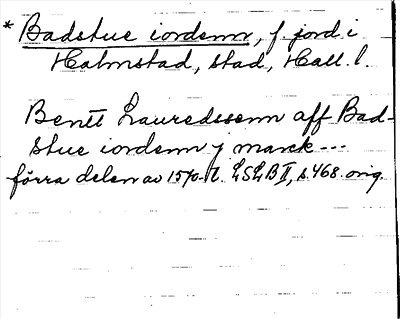 * Badstue iordenn, f. jord i
Halmstad, stad, Hall. l.
Bentt Lauredssenn aff Bad-
stue iordenn j marck ---
förra delen av 1570-t. LSLB II, s. 468. orig.